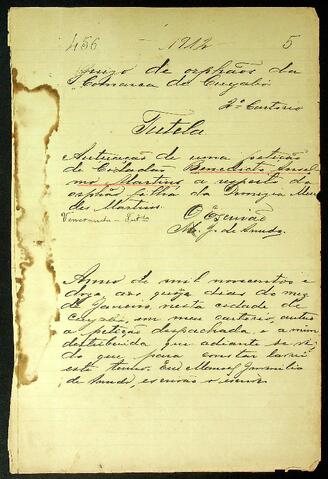 456 1912 5
Juizo de orphãos da
Comarca de Cuyabá
2º Cartorio
Tutela
Autuação de uma petição
do Cidadão Benedicto Ansel
mo Martins a respeito do
orphão filho da
des Martins.
O Escrivão
M. J. de Arruda
Anno de mil novecentos e
doze aos quinze dias do mez
de Janeiro, nesta cidade de
Cuyabá, em meu cartorio, autuo
a petição despachada, e a mim
destribuida que adiante se vê
do que, para constar lavrei
este termo. Eu Manoel
de Arruda, escrivão o escrevi